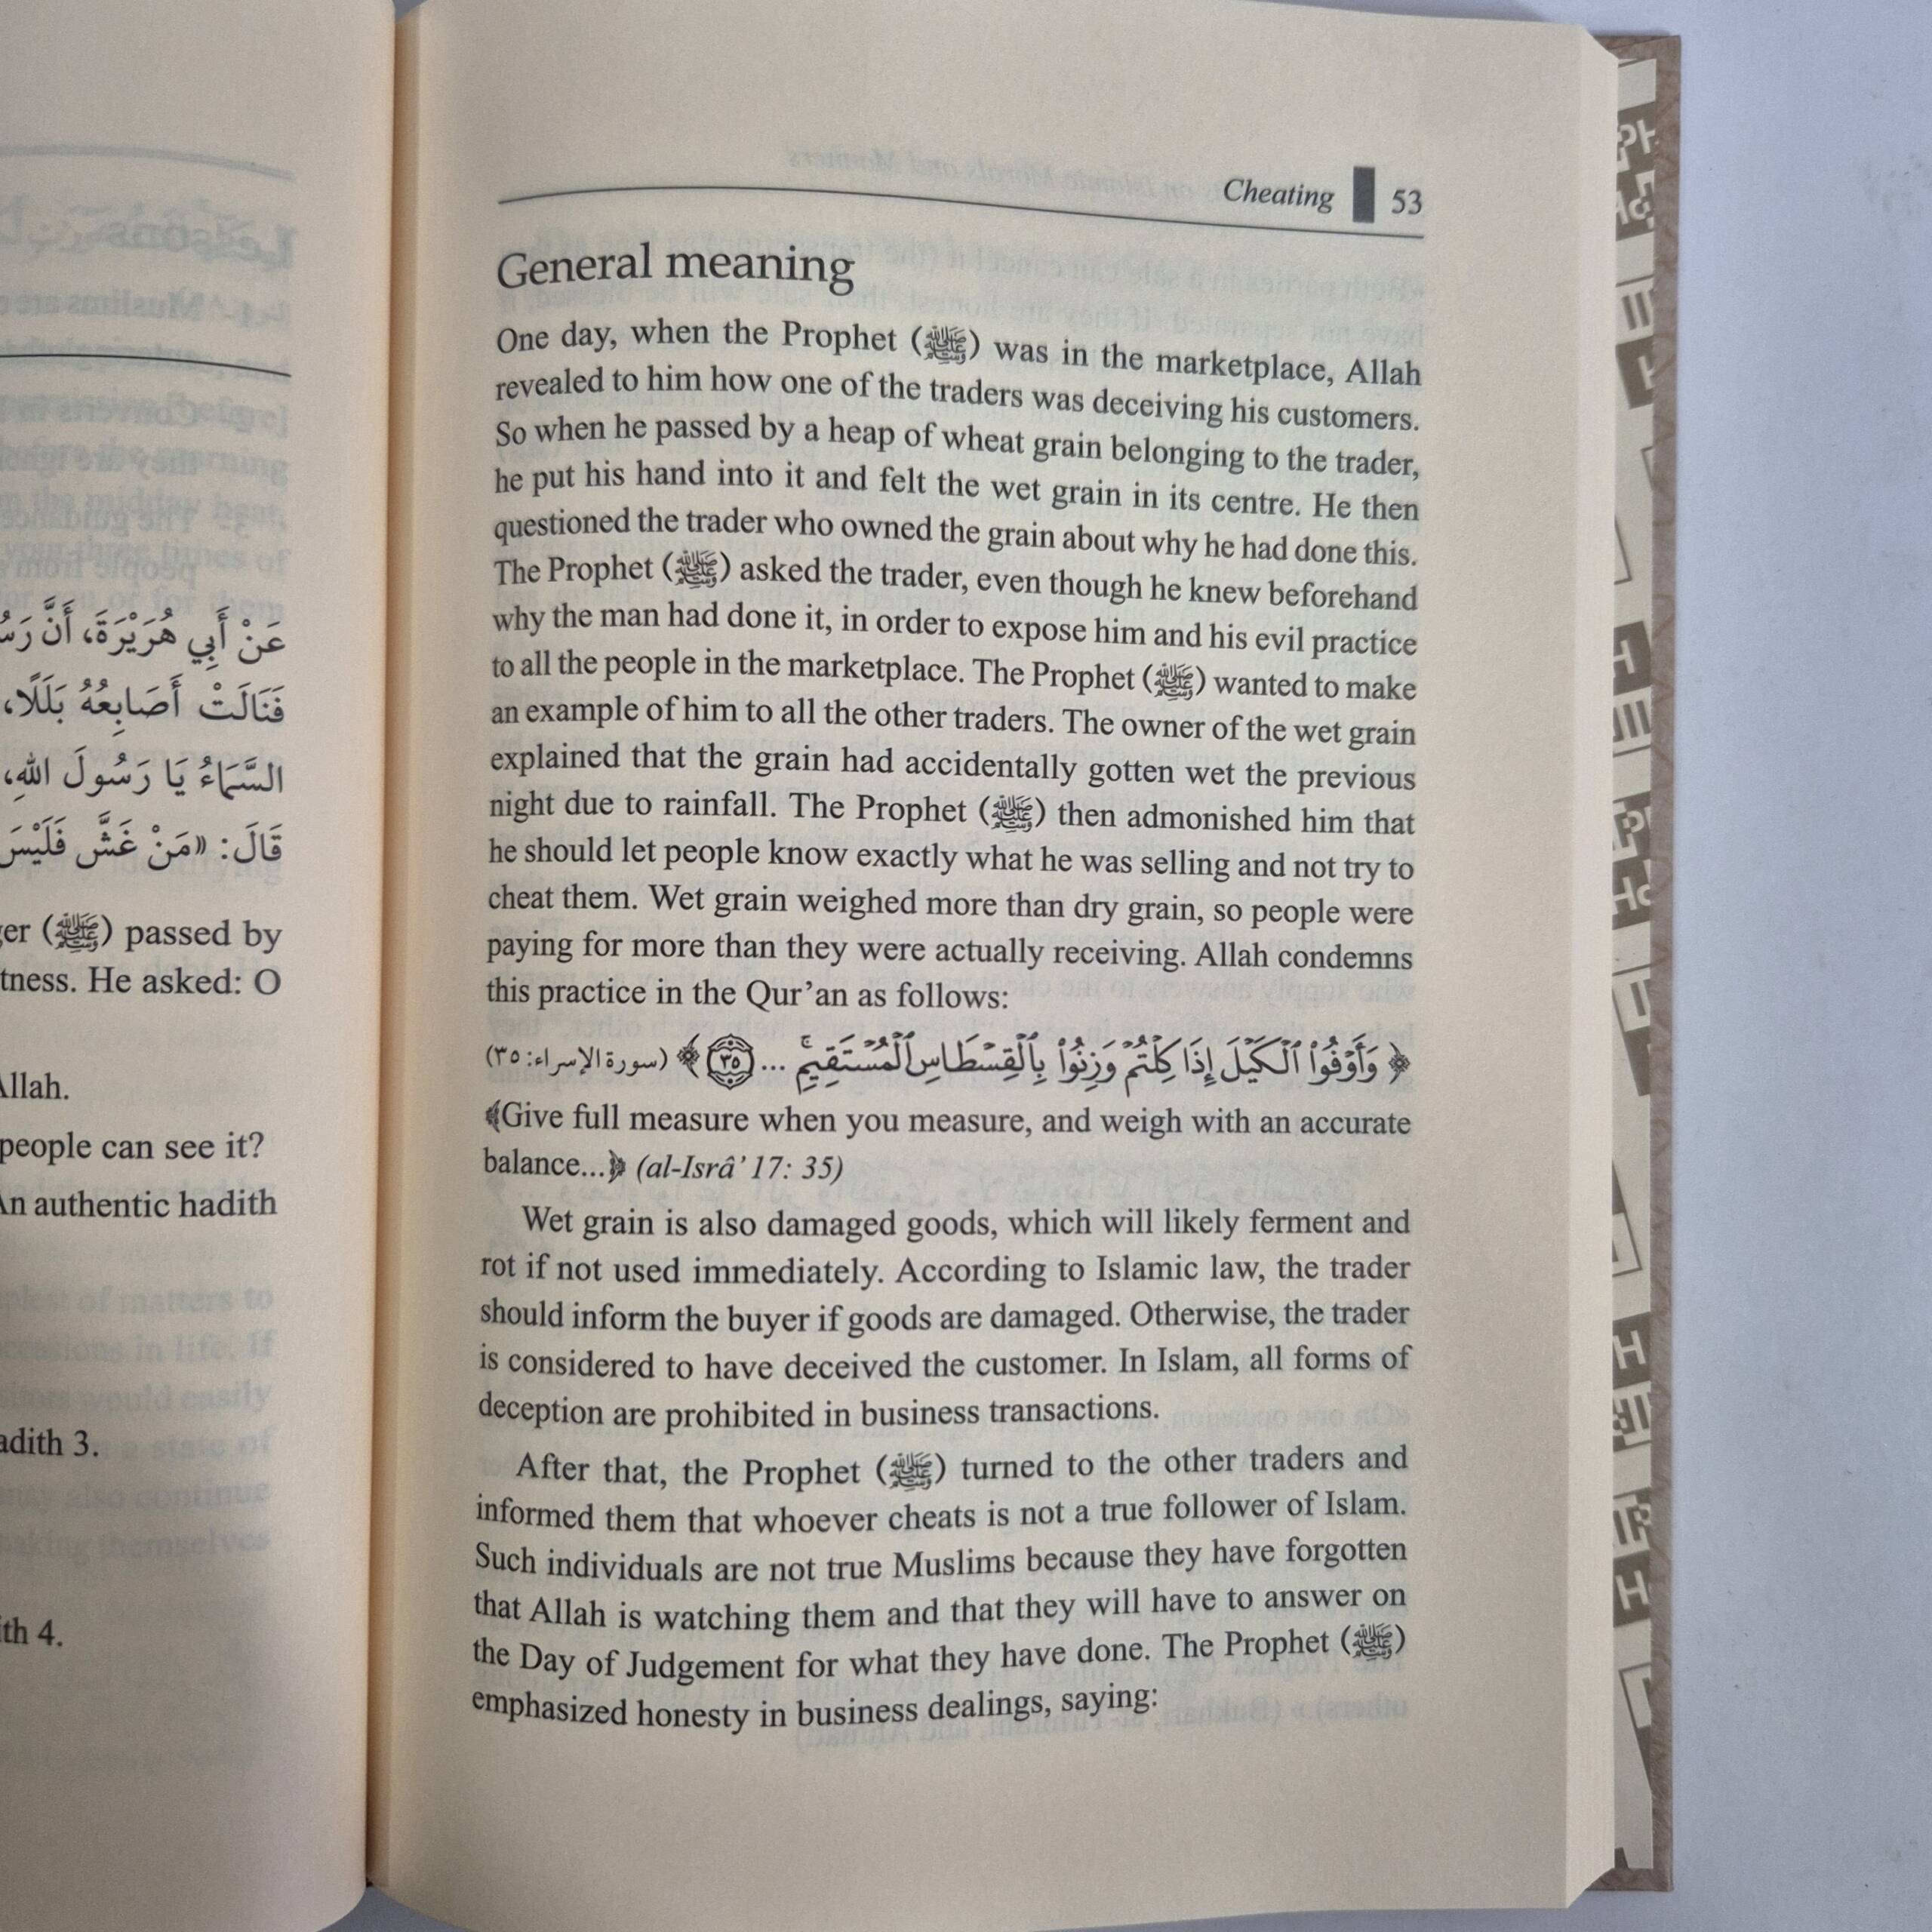 عَنْ أَبِي هُرَيْرَةَ، أَنَّ
فَنَالَتْ أَصَابِعُهُ بَلَلًا،
السَّمَاءُ يَا رَسُولَ اللهِ،
قَالَ: «مَنْ غَشَّ فَلَيْسَ
(ﷺ) passed by
He asked: O
Allah.
people can see it?
An authentic hadith
3.
4.
Cheating 53
General meaning
One day, when the Prophet (ﷺ) was in the marketplace, Allah
revealed to him how one of the traders was deceiving his customers.
So when he passed by a heap of wheat grain belonging to the trader,
he put his hand into it and felt the wet grain in its centre. He then
questioned the trader who owned the grain about why he had done this.
The Prophet (ﷺ) asked the trader, even though he knew beforehand
why the man had done it, in order to expose him and his evil practice
to all the people in the marketplace. The Prophet (ﷺ) wanted to make
an example of him to all the other traders. The owner of the wet grain
explained that the grain had accidentally gotten wet the previous
night due to rainfall. The Prophet (ﷺ) then admonished him that
he should let people know exactly what he was selling and not try to
cheat them. Wet grain weighed more than dry grain, so people were
paying for more than they were actually receiving. Allah condemns
this practice in the Qur’an as follows:
﴿ وَأَوْفُوا۟ ٱلْكَيْلَ إِذَا كِلْتُمْ وَزِنُوا۟ بِٱلْقِسْطَاسِ ٱلْمُسْتَقِيمِ ۚ ... ٣٥ ﴾ (سورة الإسراء: ٣٥)
﴾Give full measure when you measure, and weigh with an accurate
balance...﴿ (al-Isrâ’ 17: 35)
Wet grain is also damaged goods, which will likely ferment and
rot if not used immediately. According to Islamic law, the trader
should inform the buyer if goods are damaged. Otherwise, the trader
is considered to have deceived the customer. In Islam, all forms of
deception are prohibited in business transactions.
After that, the Prophet (ﷺ) turned to the other traders and
informed them that whoever cheats is not a true follower of Islam.
Such individuals are not true Muslims because they have forgotten
that Allah is watching them and that they will have to answer on
the Day of Judgement for what they have done. The Prophet (ﷺ)
emphasized honesty in business dealings, saying: